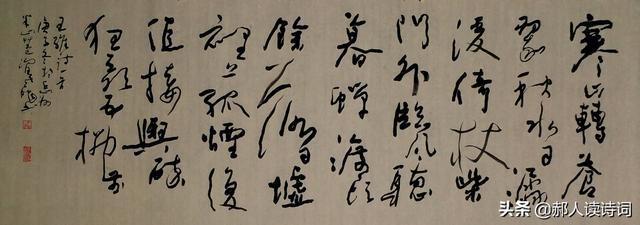 寒山轉蒼
翠秋水日潺
湲倚杖柴
門外臨風聽
暮蟬渡頭
餘落日墟
裡上孤煙復
值接輿醉
狂歌五柳前
王維詩一首
庚子冬於
头条 @郝人读诗词